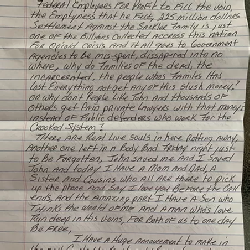 Federal Employees For Profit to Fill the void,
the Employees that he Paid, 225 million dollars
Settlement Against the Sackler Family is just
one of this Billions collected Across this nation
For Opioid Crisis and it all goes to Government
Agencies to be mis-spent, dissapered into no
where, why do Families of the dead, the
incarcerated, the people whos Families Has
lost Everything not get Any of this Slush Money!
or why don't People like John and thousands of
others get Paid private lawyers with that money
instead of Public defenders who work for the
Crooked System?
There Are Real live souls in here Rotting away,
Another one left in a Body Bag Today right Just
to Be Forgotten, John saved me And I saved
John And today! I Have A Mom And Dad, A
Sister And Cousins who All I have to do is Pick
up the phone and Say I love you Before the call
ends, And the Amazing part I Have A Son who
Thinks the world of me And A man who's love
Ran deep in his veins, For Both of us to one day
Be Free,
I Have A Huge Announcement to make in